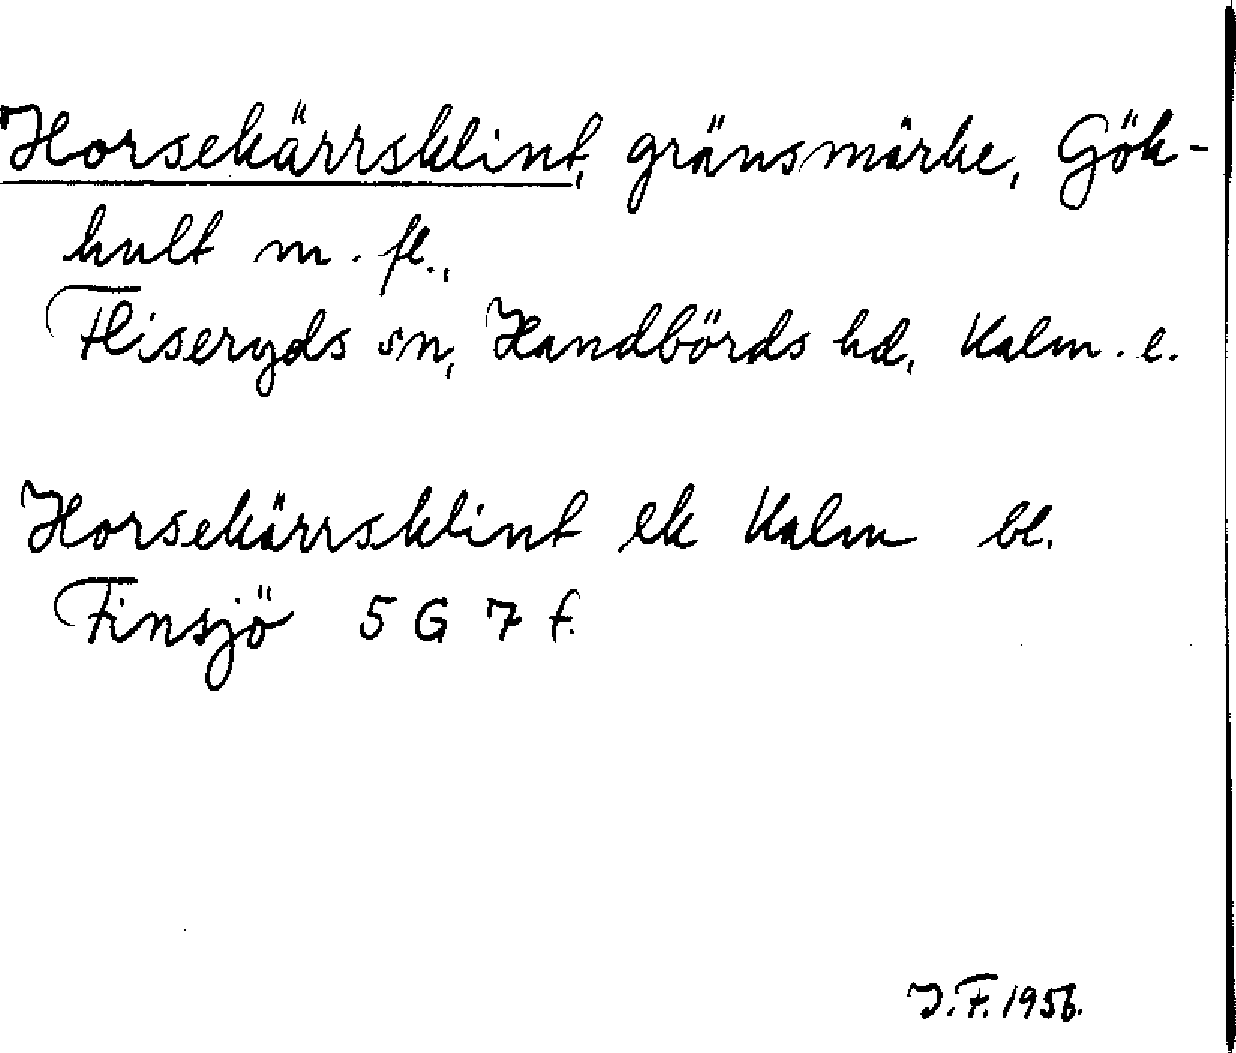 Horsekärrsklint, gränsmärke, Gök-
hult m. fl.,
Fliseryds sn, Handbörds hd, Kalm. l.
Horsekärrsklint ek Kalm bl.
Finsjö 5 G 7 f.
J. F. 1956.